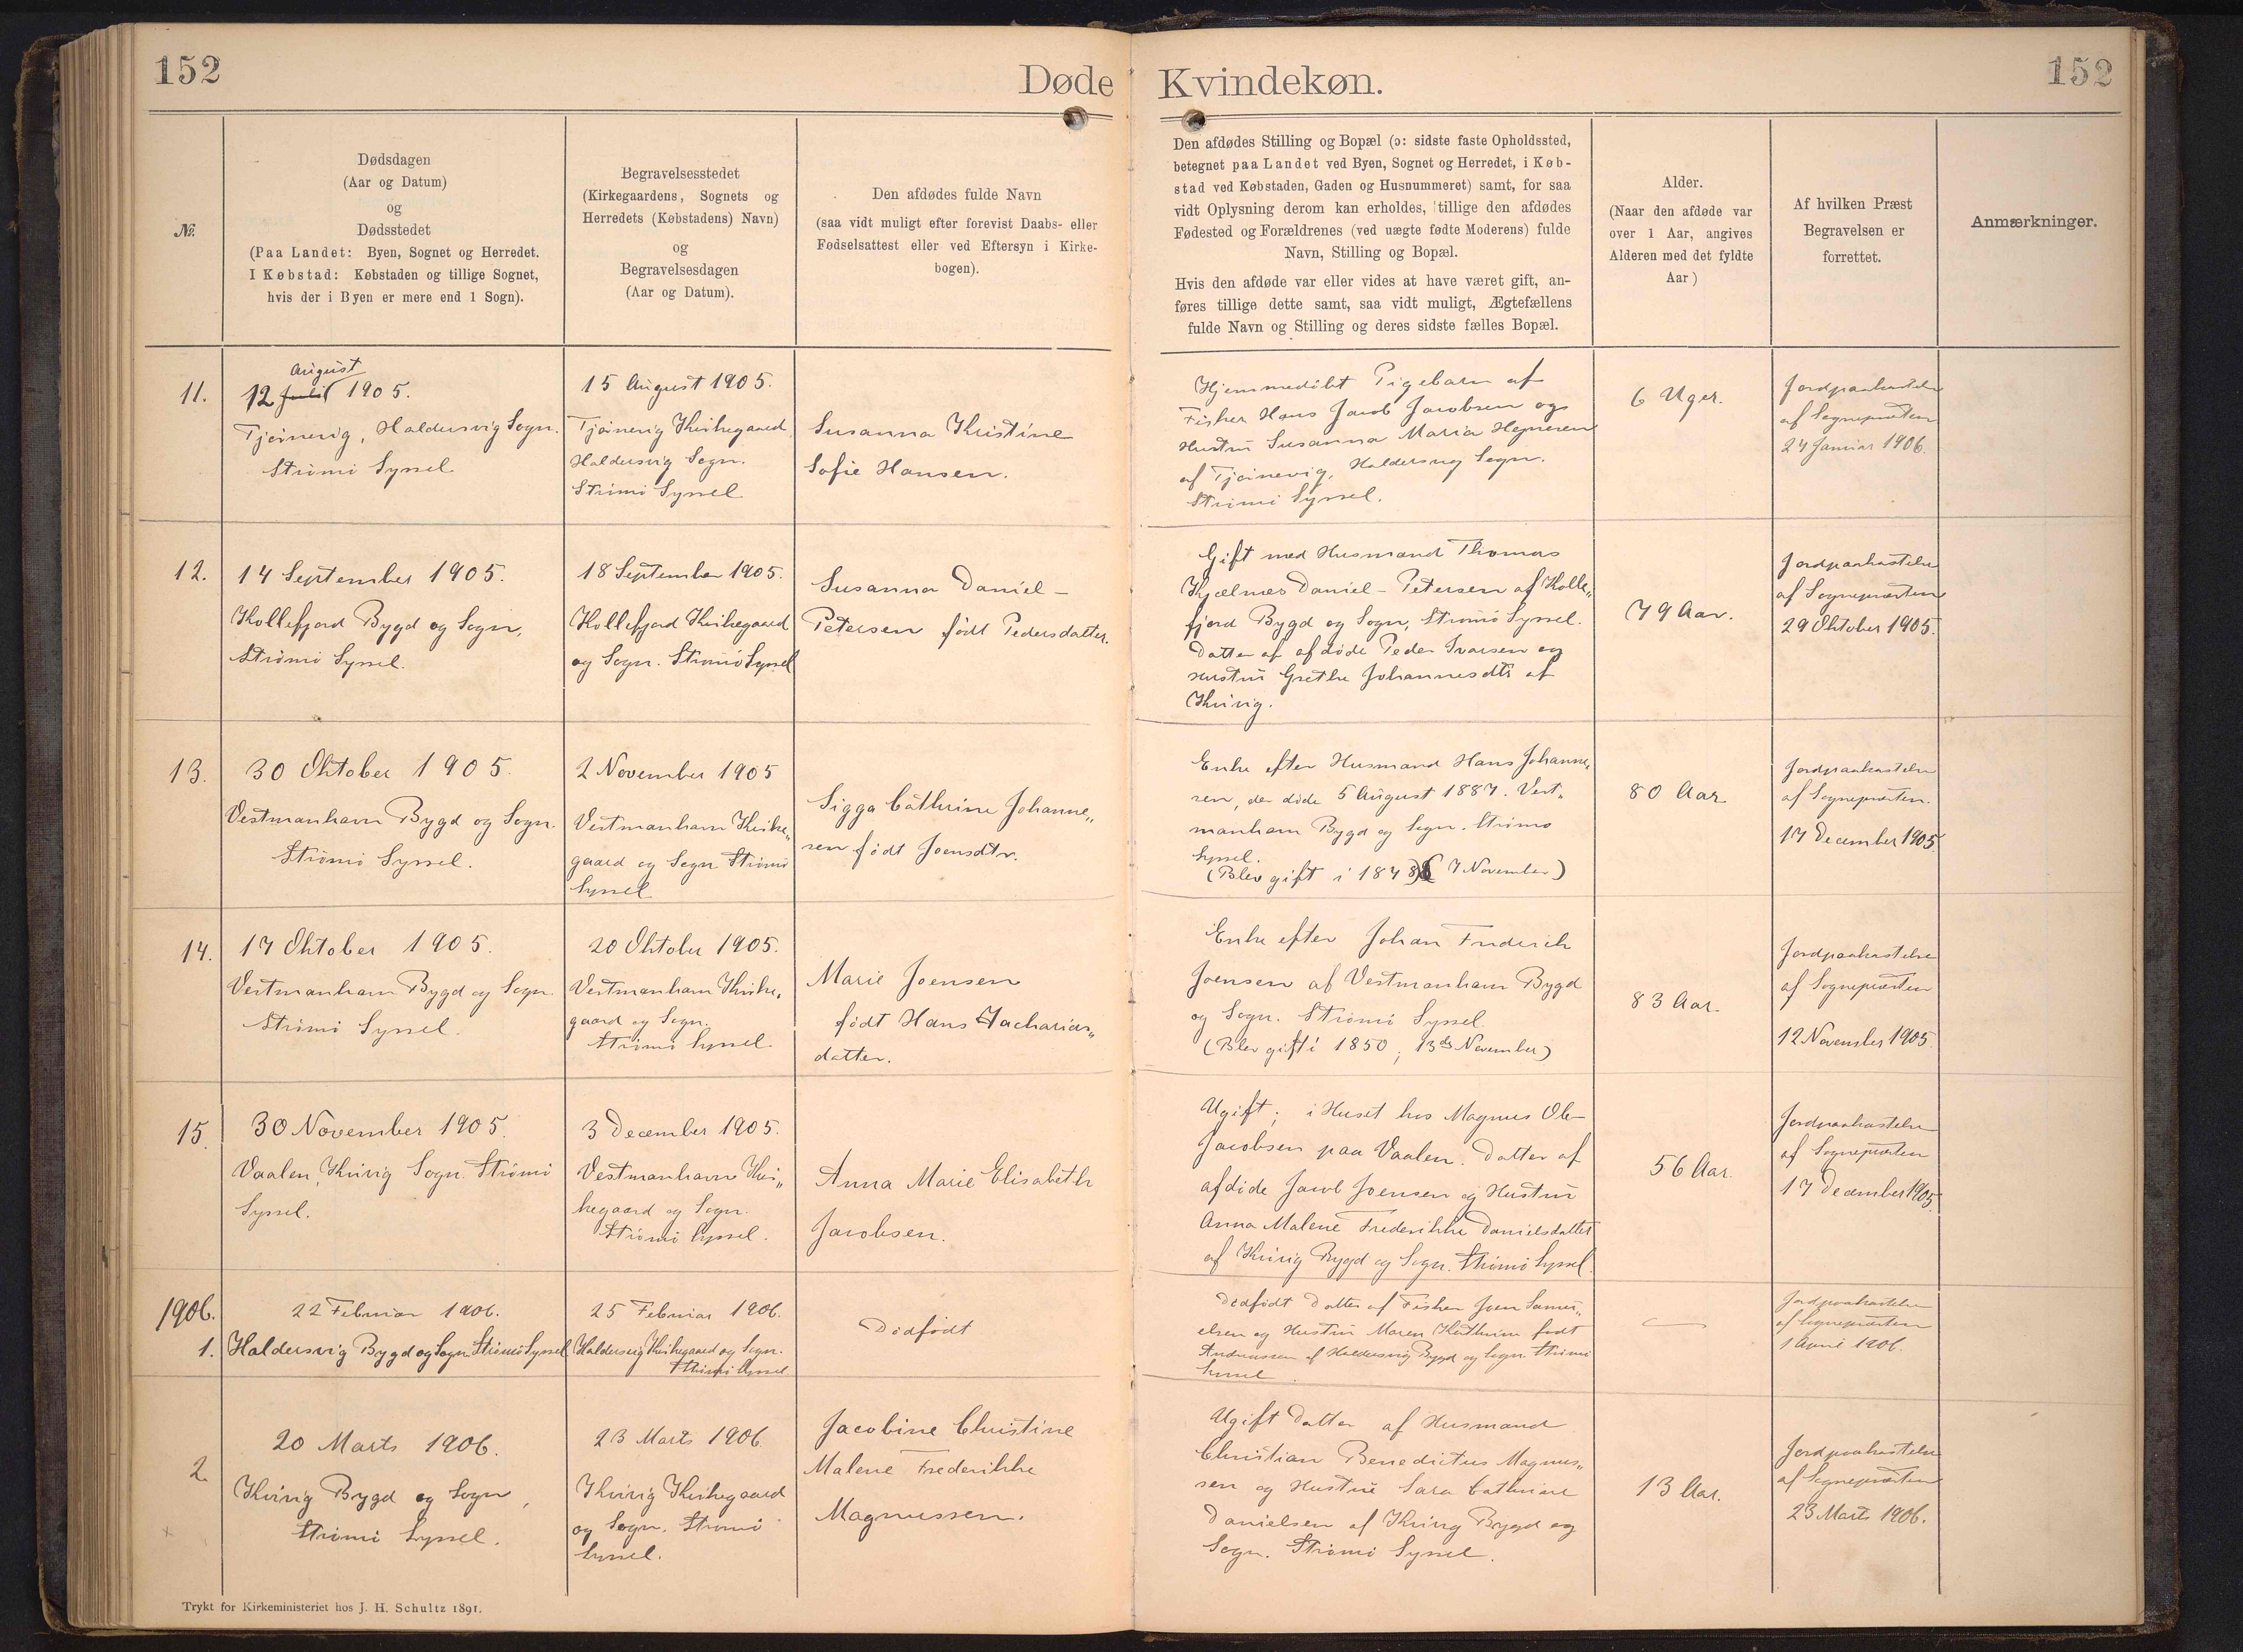 152
Døde
Kvindekøn.
152
№.
Dødsdagen
(Aar og Datum)
og
Dødsstedet
(Paa Landet: Byen, Sognet og Herredet.
I Købstad: Købstaden og tillige Sognet,
hvis der i Byen er mere end 1 Sogn).
Begravelsesstedet
(Kirkegaardens, Sognets og
Herredets (Købstadens) Navn)
og
Begravelsesdagen
(Aar og Datum).
Den afdødes fulde Navn
(saa vidt muligt efter forevist Daabs- eller
Fødselsattest eller ved Eftersyn i Kirke-
bogen).
Den afdødes Stilling og Bopæl (ɔ: sidste faste Opholdssted,
betegnet paa Landet ved Byen, Sognet og Herredet, i Køb-
stad ved Købstaden, Gaden og Husnummeret) samt, for saa
vidt Oplysning derom kan erholdes, tillige den afdødes
Fødested og Forældrenes (ved uægte fødte Moderens) fulde
Navn, Stilling og Bopæl.
Hvis den afdøde var eller vides at have været gift, an-
føres tillige dette samt, saa vidt muligt, Ægtefællens
fulde Navn og Stilling og deres sidste fælles Bopæl.
Alder.
(Naar den afdøde var
over 1 Aar, angives
Alderen med det fyldte
Aar)
Af hvilken Præst
Begravelsen er
forrettet.
Anmærkninger.
11.
August
12 Juli 1905.
Tjørnevig, Haldersvig Sogn.
Strømø Syssel
15 August 1905.
Tjørnevig Kirkegaard
Haldersvig Sogn.
Strømø Syssel
Susanna Kristine
Sofie Hansen.
Hjemmedøbt Pigebarn af
Fisker Hans Jacob Jacobsen og
Hustru Susanna Maria
af Tjørnevig, Haldersvig Sogn.
Strømø Syssel.
6 Uger.
Jordpaakastelse
af Sognepræsten
24 Januar 1906.
12.
14 September 1905.
Kollefjord Bygd og Sogn,
Strømø Syssel.
18 September 1905.
Kollefjord Kirkegaard
og Sogn. Strømø Syssel
Susanna Daniel-
Petersen født Pedersdatter.
Gift med Husmand Thomas
Kjælnæs Daniel-Petersen af Kolle„
fjord Bygd og Sogn, Strømø Syssel.
Datter af afdøde Peder Ivarsen og
Hustru Grethe Johannesdtr af
Kvivig.
79 Aar.
Jordpaakastelse
af Sognepræsten
29 Oktober 1905.
13.
30 Oktober 1905.
Vestmanhavn Bygd og Sogn.
Strømø Syssel.
2 November 1905
Vestmanhavn Kirke„
gaard og Sogn Strømø
Syssel
Sigga Cathrine Johanne„
sen født Joensdtr.
Enke efter Husmand Hans Johanne„
sen, der døde 5 August 1887. Vest„
manhavn Bygd og Sogn. Strømø
Syssel.
(Blev gift i 1848 7 November)
80 Aar
Jordpaakastelse
af Sognepræsten.
17 December 1905.
14.
17 Oktober 1905.
Vestmanhavn Bygd og Sogn.
Strømø Syssel.
20 Oktober 1905.
Vestmanhavn Kirke„
gaard og Sogn.
Strømø Syssel.
Marie Joensen
født Hans Zacharias„
datter.
Enke efter Johan Frederik
Joensen af Vestmanhavn Bygd
og Sogn. Strømø Syssel.
(Blev gift i 1850, 13de November)
83 Aar.
Jordpaakastelse
af Sognepræsten
12 November 1905
15.
30 November 1905.
Vaalen, Kvivig Sogn. Strømø
Syssel.
3 December 1905.
Vestmanhavn Kir„
kegaard og Sogn.
Strømø Syssel.
Anna Marie Elisabeth
Jacobsen.
Ugift; i Huset hos Magnus Ole
Jacobsen paa Vaalen. Datter af
afdøde Jacob Joensen og Hustru
Anna Malene Frederikke Danielsdatter
af Kvivig Bygd og Sogn. Strømø Syssel.
56 Aar.
Jordpaakastelse
af Sognepræsten
17 December 1905
1906.
1.
22 Februar 1906.
Haldersvig Bygd og Sogn Strømø Syssel
25 Februar 1906.
Haldersvig Kirkegaard og Sogn.
Strømø Syssel
Dødfødt
Dødfødt Datter af Fisker Joen Samu„
elsen og Hustru Maren Kathrine født
Andreassen af Haldersvig Bygd og Sogn Strømø
Syssel.
—
Jordpaakastelse
af Sognepræsten
1 April 1906.
2.
20 Marts 1906.
Kvivig Bygd og Sogn,
Strømø Syssel.
23 Marts 1906.
Kvivig Kirkegaard
og Sogn. Strømø
Syssel.
Jacobine Christine
Malene Frederikke
Magnussen.
Ugift Datter af Husmand
Christian Benedictus Magnus„
sen og Hustru Sara Cathrine
Danielsen af Kvivig Bygd og
Sogn. Strømø Syssel.
13 Aar.
Jordpaakastelse
af Sognepræsten
23 Marts 1906.
Trykt for Kirkeministeriet hos J. H. Schultz 1891.